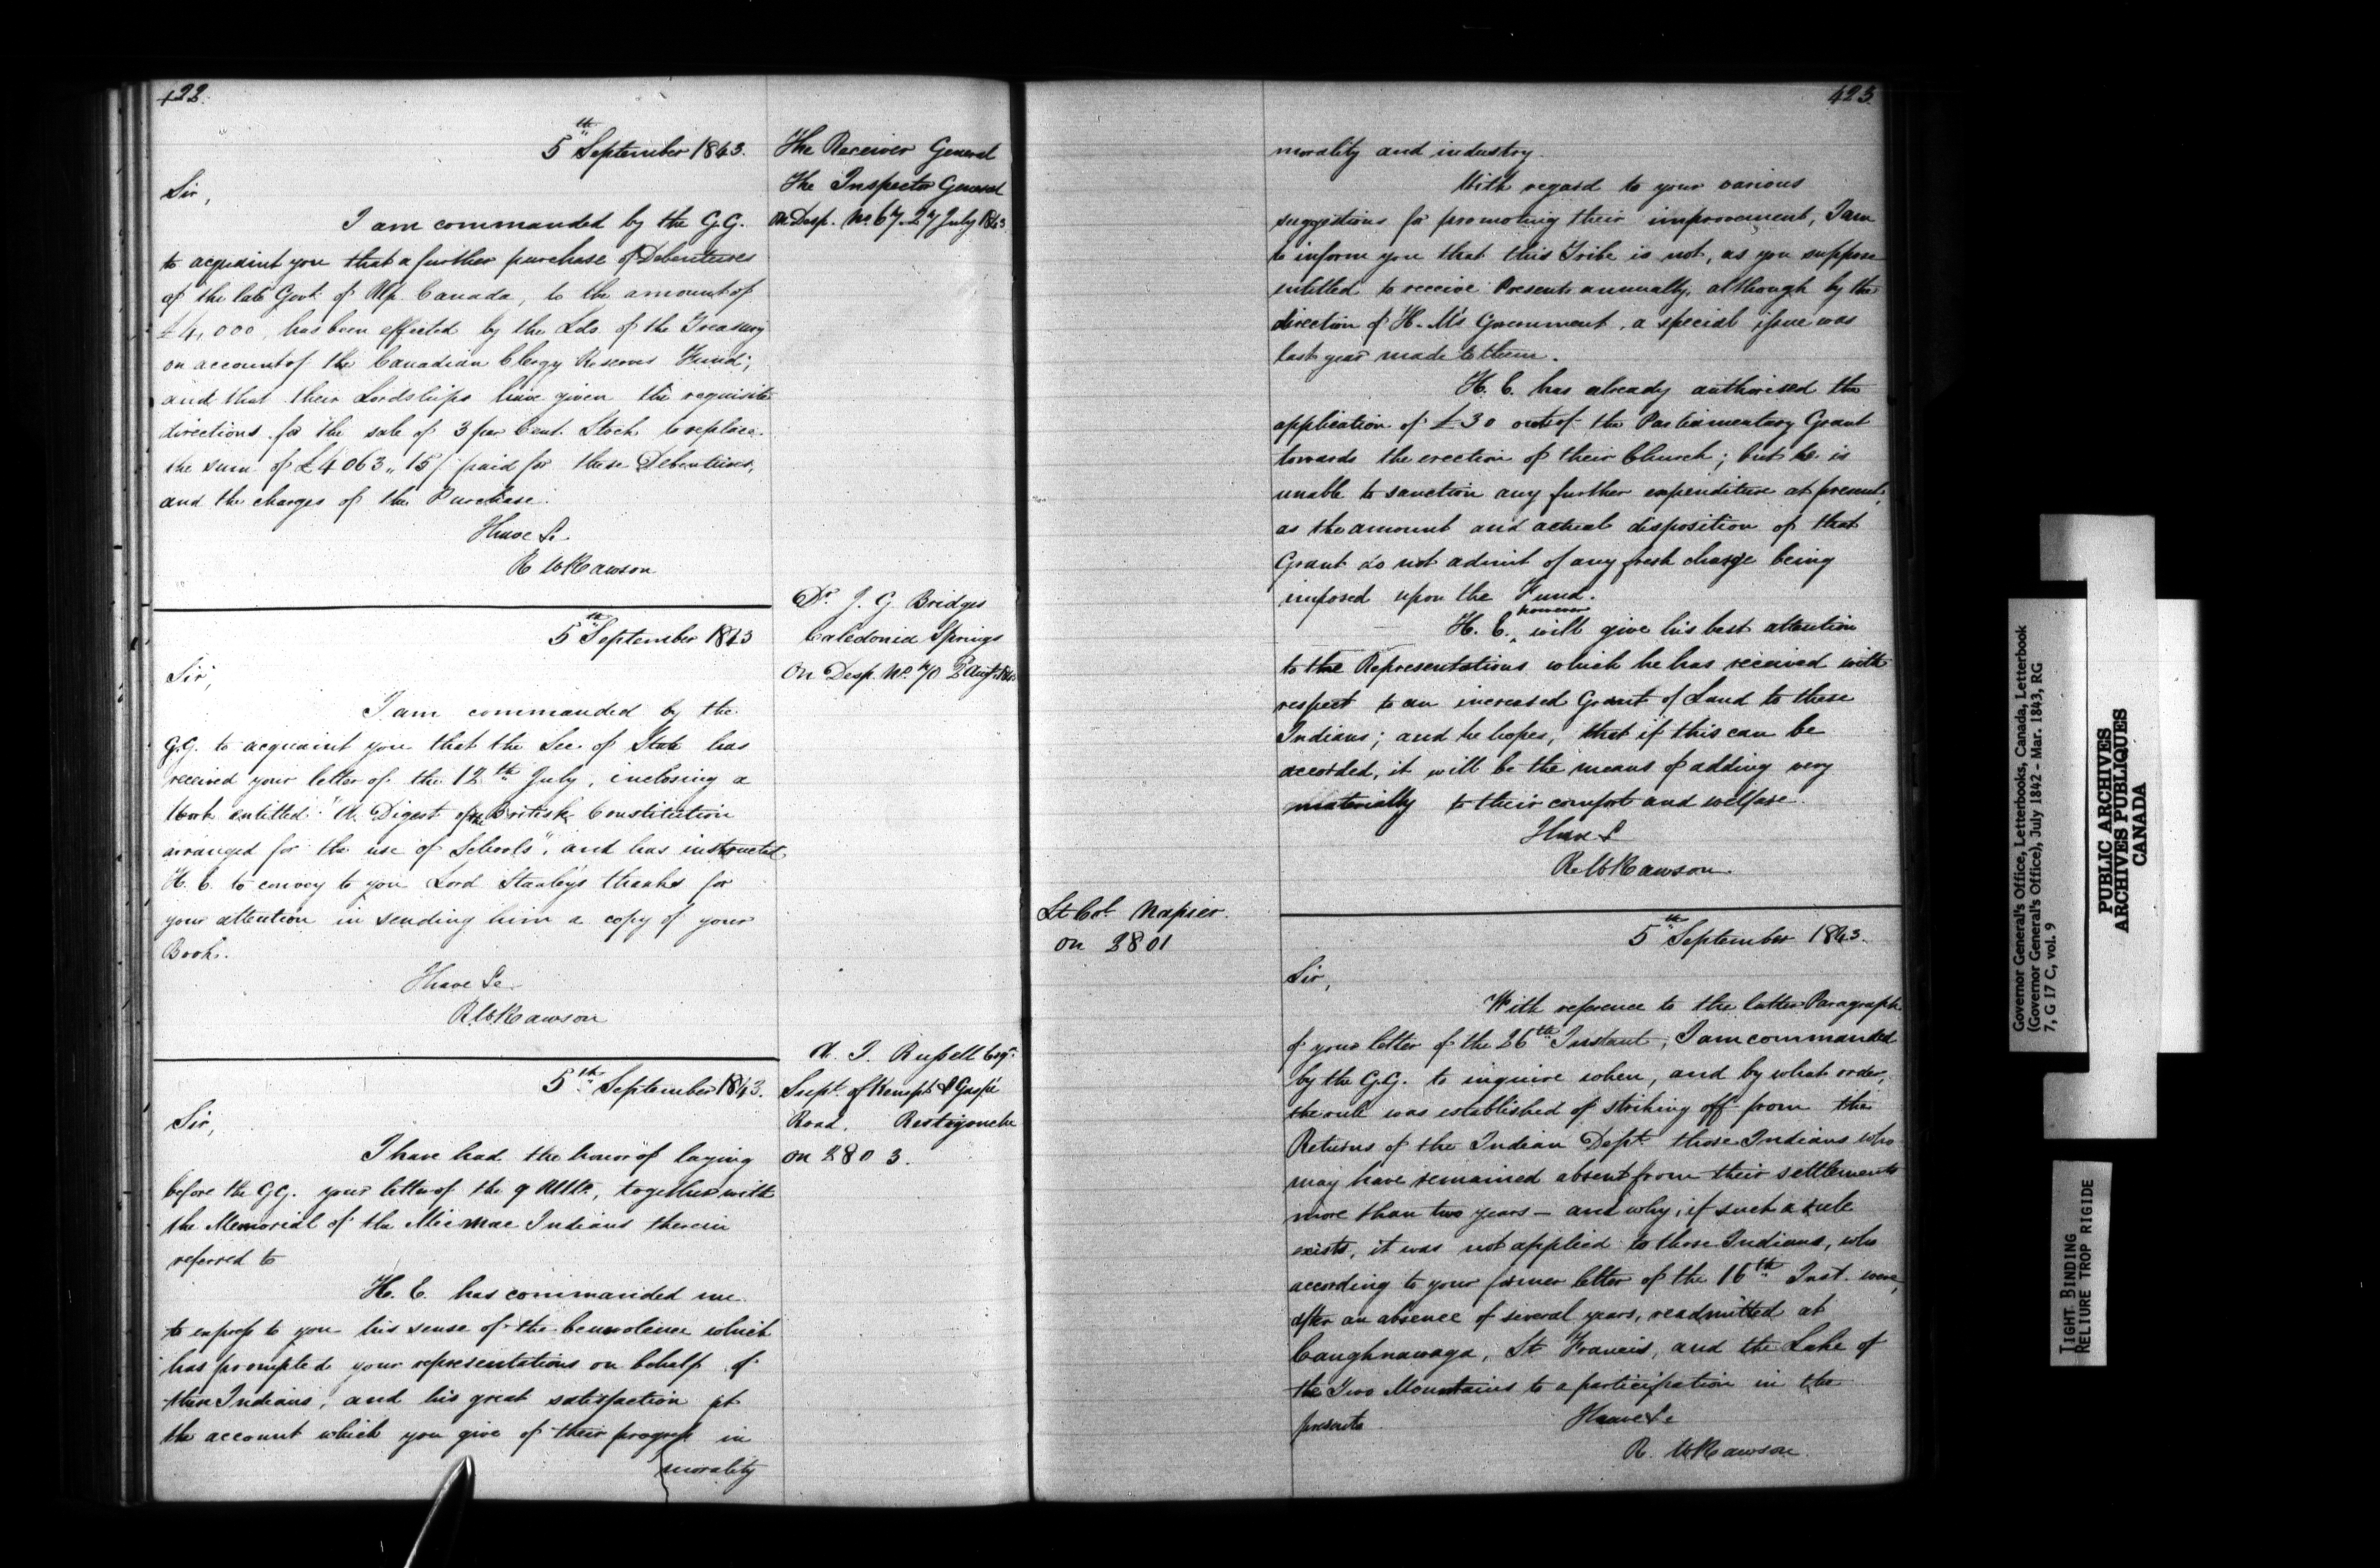 422.
5th September 1843.
The Receiver General
The Inspector General
On Desp. No. 67. 27 July 1843
Sir,
I am commanded by the G.G.
to acquaint you that a further purchase of Debentures
of the late Govt. of Up. Canada, to the amount of
£4,000, has been effected by the Lds. of the Treasury
on account of the Canadian Clergy Reserves Fund;
and that their Lordships have given the requisite
directions for the sale of 3 per Cent. Stock to replace
the sum of £4063,, 15/ paid for these Debentures,
and the charges of the Purchase.
I have &c.
R W Rawson
Dr. J. G. Bridges
Caledonia Springs
On Desp. No. 70 2 Augt.
5th September 1843
Sir,
I am commanded by the
G.G. to acquaint you that the Sec. of State has
received your letter of the 12th July, inclosing a
Work entitled "A Digest of the British Constitution
arranged for the use of Schools", and has instructed
H. E. to convey to you Lord Stanley's thanks for
your attention in sending him a copy of your
Book.
I have &c.
R.W. Rawson
A. J. Russell Esqr.
Supt. of Kempt & Gaspé
Road. Restigouche
on 2803.
5th September 1843.
Sir,
I have had the honor of laying
before the G.G. your letter of the 9 Ulto., together with
the Memorial of the Micmac Indians therein
referred to
H. E. has commanded me
to express to you his sense of the benevolence which
has prompted your representations on behalf of
these Indians, and his great satisfaction at
the account which you give of their progress in
morality
423.
morality and industry.
With regard to your various
suggestions for promoting their improvement, I am
to inform you that this Tribe is not, as you suppose
intitled to receive Presents annually, although by the
direction of H. M's Government, a special issue was
last year made to them.
H. E. has already authorised the
application of £30 out of the Parliamentary Grant
towards the erection of their Church; but he is
unable to sanction any further expenditure at present,
as the amount and actual disposition of that
Grant do not admit of any fresh charge being
imposed upon the Fund.
however
H. E. will give his best attention
to the Representations which he has received with
respect to an increased Grant of Land to these
Indians; and he hopes, that if this can be
accorded, it will be the means of adding very
materially to their comfort and welfare.
I have &
R.W. Rawson.
Lt. Col. Napier.
on 2801
5th September 1843.
Sir,
With reference to the latter Paragraph
of your letter of the 26th Instant, I am commanded
by the G.G. to inquire when, and by what order,
the rule was established of striking off from the
Returns of the Indian Dept. those Indians who
may have remained absent from their settlements
more than two years — and why, if such a rule
exists, it was not applied to those Indians, who
according to your former letter of the 16th Inst. were,
after an absence of several years, readmitted at
Caughnawaga, St. Francis, and the Lake of
the Two Mountains to a participation in the
presents.
I have &c
R. W Rawson.
Governor General's Office, Letterbooks, Canada, Letterbook
(Governor General's Office), July 1842 - Mar. 1843, RG
7, G 17 C, vol. 9
PUBLIC ARCHIVES
ARCHIVES PUBLIQUES
CANADA
TIGHT BINDING
RELIURE TROP RIGIDE